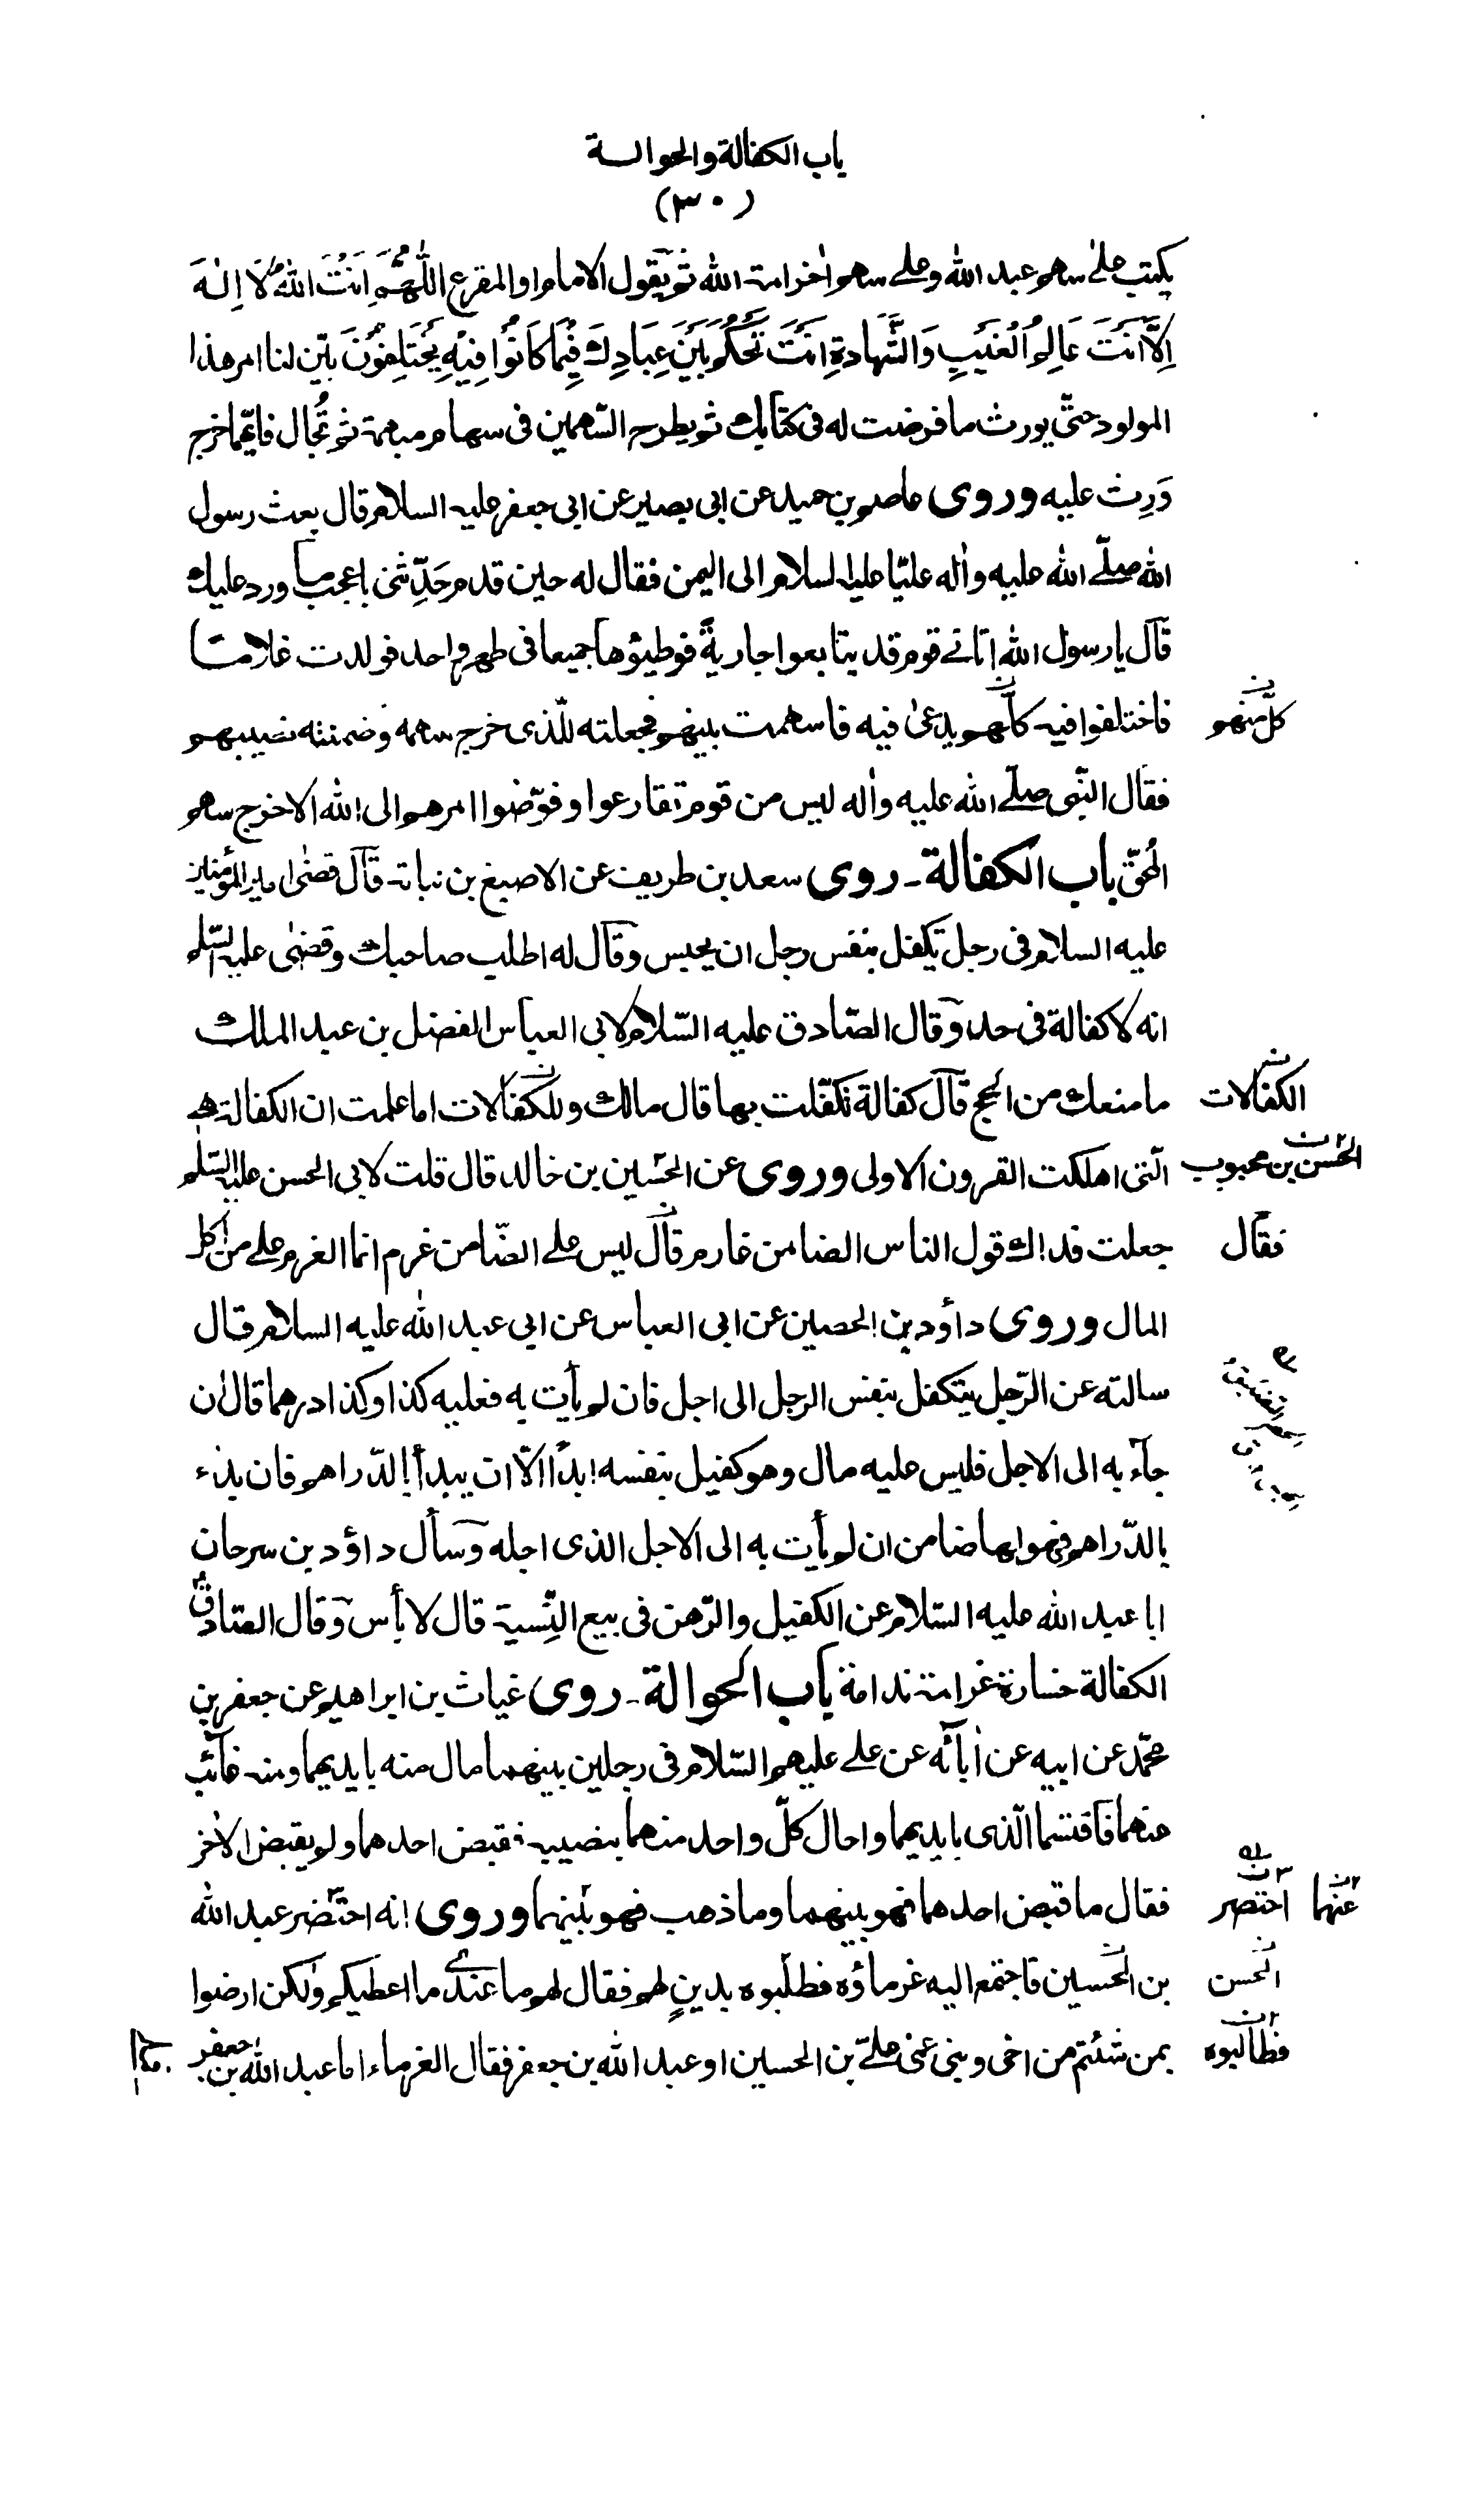 باب الكفالة والحوالة
(٣٠)
يكتب على سهم عبد الله وعلى سهم اٰخر امة الله ثم يقول الامام او المقرع اَللّٰهُمَّ اَنْتَ اللهُ لَا اِلٰهَ
اِلَّا اَنْتَ عَالِمُ الْغَيْبِ وَالشَّهَادَةِ اَنْتَ تَحْكُمُ بَيْنَ عِبَادِكَ فِيْمَا كَانُوْا فِيْهِ يَخْتَلِفُوْنَ بيّن لنا امر هذا
المولود حتّى يورث ما فرضت له فى كتابك ثم يطرح السّهمين فى سهام مبهمة ثم تُجال فايّهما خرج
وَرِث عليه وروى عاصم بن حميد عن ابى بصير عن ابى جعفر عليه السلام قال بعث رسول
الله صلّى الله عليه واٰله عليّا عليه السلام الى اليمن فقال له حين قدم حَدِّثنى باعجب ما ورد عليك
قال يا رسول الله اتانى قوم قد يتابعوا جاريةً فوطيؤها جميعا فى طهر واحد فولدت غلامًا
فاختلفوا فيه كلّهم يدعى فيه فاسهمت بينهم فجعلته للّذى خرج سهمه وضمنته نصيبهم
كلّ منهم
فقال النّبى صلّى الله عليه واٰله ليس من قوم تقارعوا وفوّضوا امرهم الى الله الا خرج سهم
المُحقّ باب الكفالة ـ روى سعد بن طريف عن الاصبغ بن نباتة قال قضٰى امير المؤمنين
عليه السلام فى رجل تكفل بنفس رجل ان يحبس وقال له اطلب صاحبك وقضٰى عليه السّلم
انه لا كفالة فى حد وقال الصّادق عليه السّلام لابى العباس الفضل بن عبد الملك
ما منعك من الحج قال كفالة تكفّلت بها قال مالك وللكفالات اما علمت ان الكفالة هى
الكفالات
الّتى اهلكت القرون الاولى وروى عن الحسين بن خالد قال قلت لابى الحسن عليه السّلم
الحسن بن محبوب
جعلت فداك قول الناس الضامن غارم قال ليس على الضّامن غرم انما الغرم على من اكل
فقال
المال وروى داؤد بن الحصين عن ابى العباس عن ابى عبد الله عليه السلام قال
سالته عن الرّجل يتكفل بنفس الرجل الى اجل فان لم يأت به فعليه كذا وكذا درهما قال ان
جاء به الى الاجل فليس عليه مال وهو كفيل بنفسه ابدًا الّا ان يبدأ بالدّراهم فان بدء
بالدّراهم فهو لها ضامن ان لم يأت به الى الاجل الذى اجله وسأل داؤد بن سرحان
ابا عبد الله عليه السّلام عن الكفيل والرّهن فى بيع النّسية قال لا بأس وقال الصّادق
الكفالة خسارة غرامة ندامة باب الحوالة ـ روى غياث بن ابراهيم عن جعفر بن
محمّد عن ابيه عن اٰبائه عن على عليهم السّلام فى رجلين بينهما مال منه بايديهما ومنه غائب
عنهما فاقتسما الّذى بايديهما واحال كلّ واحد منهما بنصيبه فقبض احدهما ولم يقبض الاٰخر
فقال ما قبض احدهما فهو بينهما وما ذهب فهو بينهما وروى انه احتضر عبد الله
احتضر
عنهما
بن الحسين فاجتمع اليه غرماؤه فطلبوه بدينٍ لهم فقال لهم ما عندى ما اعطيكم ولٰكن ارضوا
الحسن
بمن شئتم من اخى وبنى عمّى علىّ بن الحسين او عبد الله بن جعفر فقال الغرماء اما عبد الله بن جعفر
فطالبوه